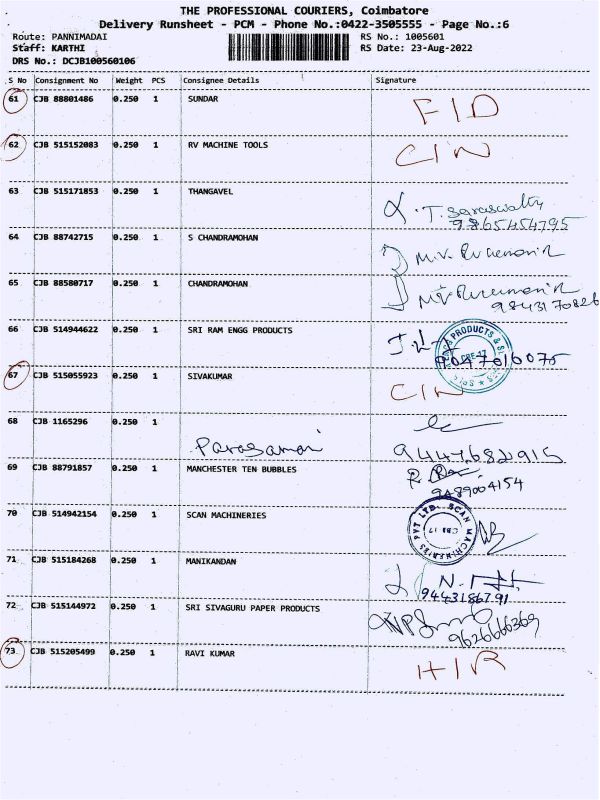 THE PROFESSIONAL COURIERS, Coimbatore
Delivery Runsheet - PCM - Phone No.:0422-3505555 - Page No.:6
Route: PANNIMADAI RS No.: 1005601
Staff: KARTHI RS Date: 23-Aug-2022
DRS No.: DCJB100560106
S No Consignment No Weight PCS Consignee Details Signature
61 CJB 88801486 0.250 1 SUNDAR FID
62 CJB 515152083 0.250 1 RV MACHINE TOOLS CIN
63 CJB 515171853 0.250 1 THANGAVEL T. Saraswathy
9865454795
64 CJB 88742715 0.250 1 S CHANDRAMOHAN M.V.
65 CJB 88580717 0.250 1 CHANDRAMOHAN
9843170826
66 CJB 514944622 0.250 1 SRI RAM ENGG PRODUCTS
9047016075
67 CJB 515055923 0.250 1 SIVAKUMAR CIN
68 CJB 1165296 0.250 1
9447682915
69 CJB 88791857 0.250 1 MANCHESTER TEN BUBBLES
9489004154
70 CJB 514942154 0.250 1 SCAN MACHINERIES SCAN MACHINERIES PVT LTD.
71 CJB 515184268 0.250 1 MANIKANDAN
9443186791
72 CJB 515144972 0.250 1 SRI SIVAGURU PAPER PRODUCTS
9626666369
73 CJB 515205499 0.250 1 RAVI KUMAR HIR